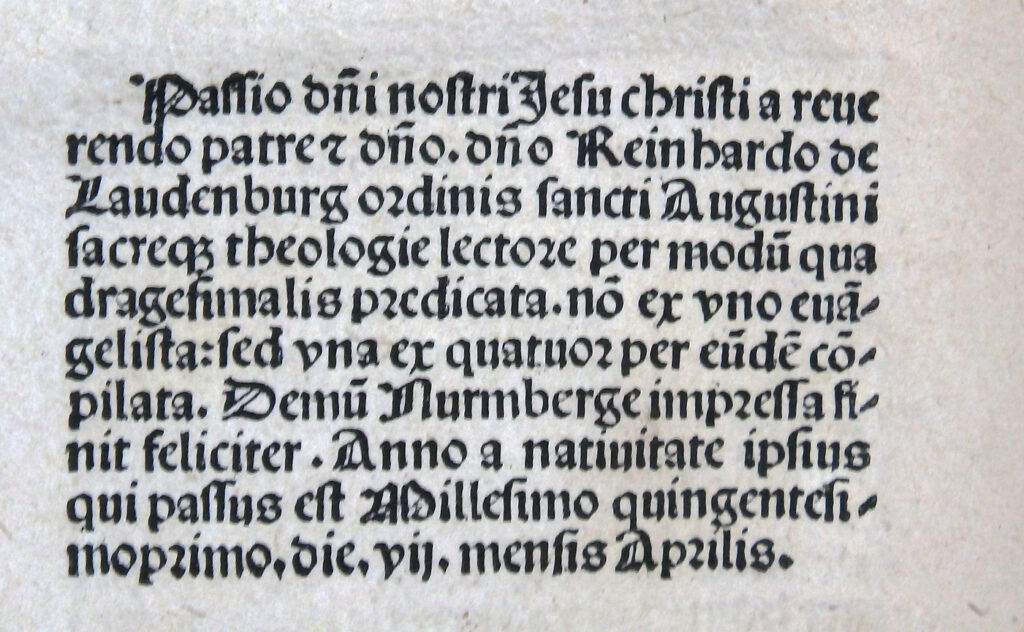 Paſſio dñi noſtri Jeſu chriſti a reue
rendo patre ⁊ dño. dño Reinhardo de
Laudenburg ordinis ſancti Auguſtini
ſacreqꝫ theologie lectore per modū qua
drageſimalis predicata. nō ex vno euā-
geliſta: ſed vna ex quatuor per eūdē cō-
pilata. Demū Nurmberge impreſſa fi-
nit feliciter. Anno a natiuitate ipſius
qui paſſus eſt Milleſimo quingenteſi-
moprimo, die, vij, menſis Aprilis.